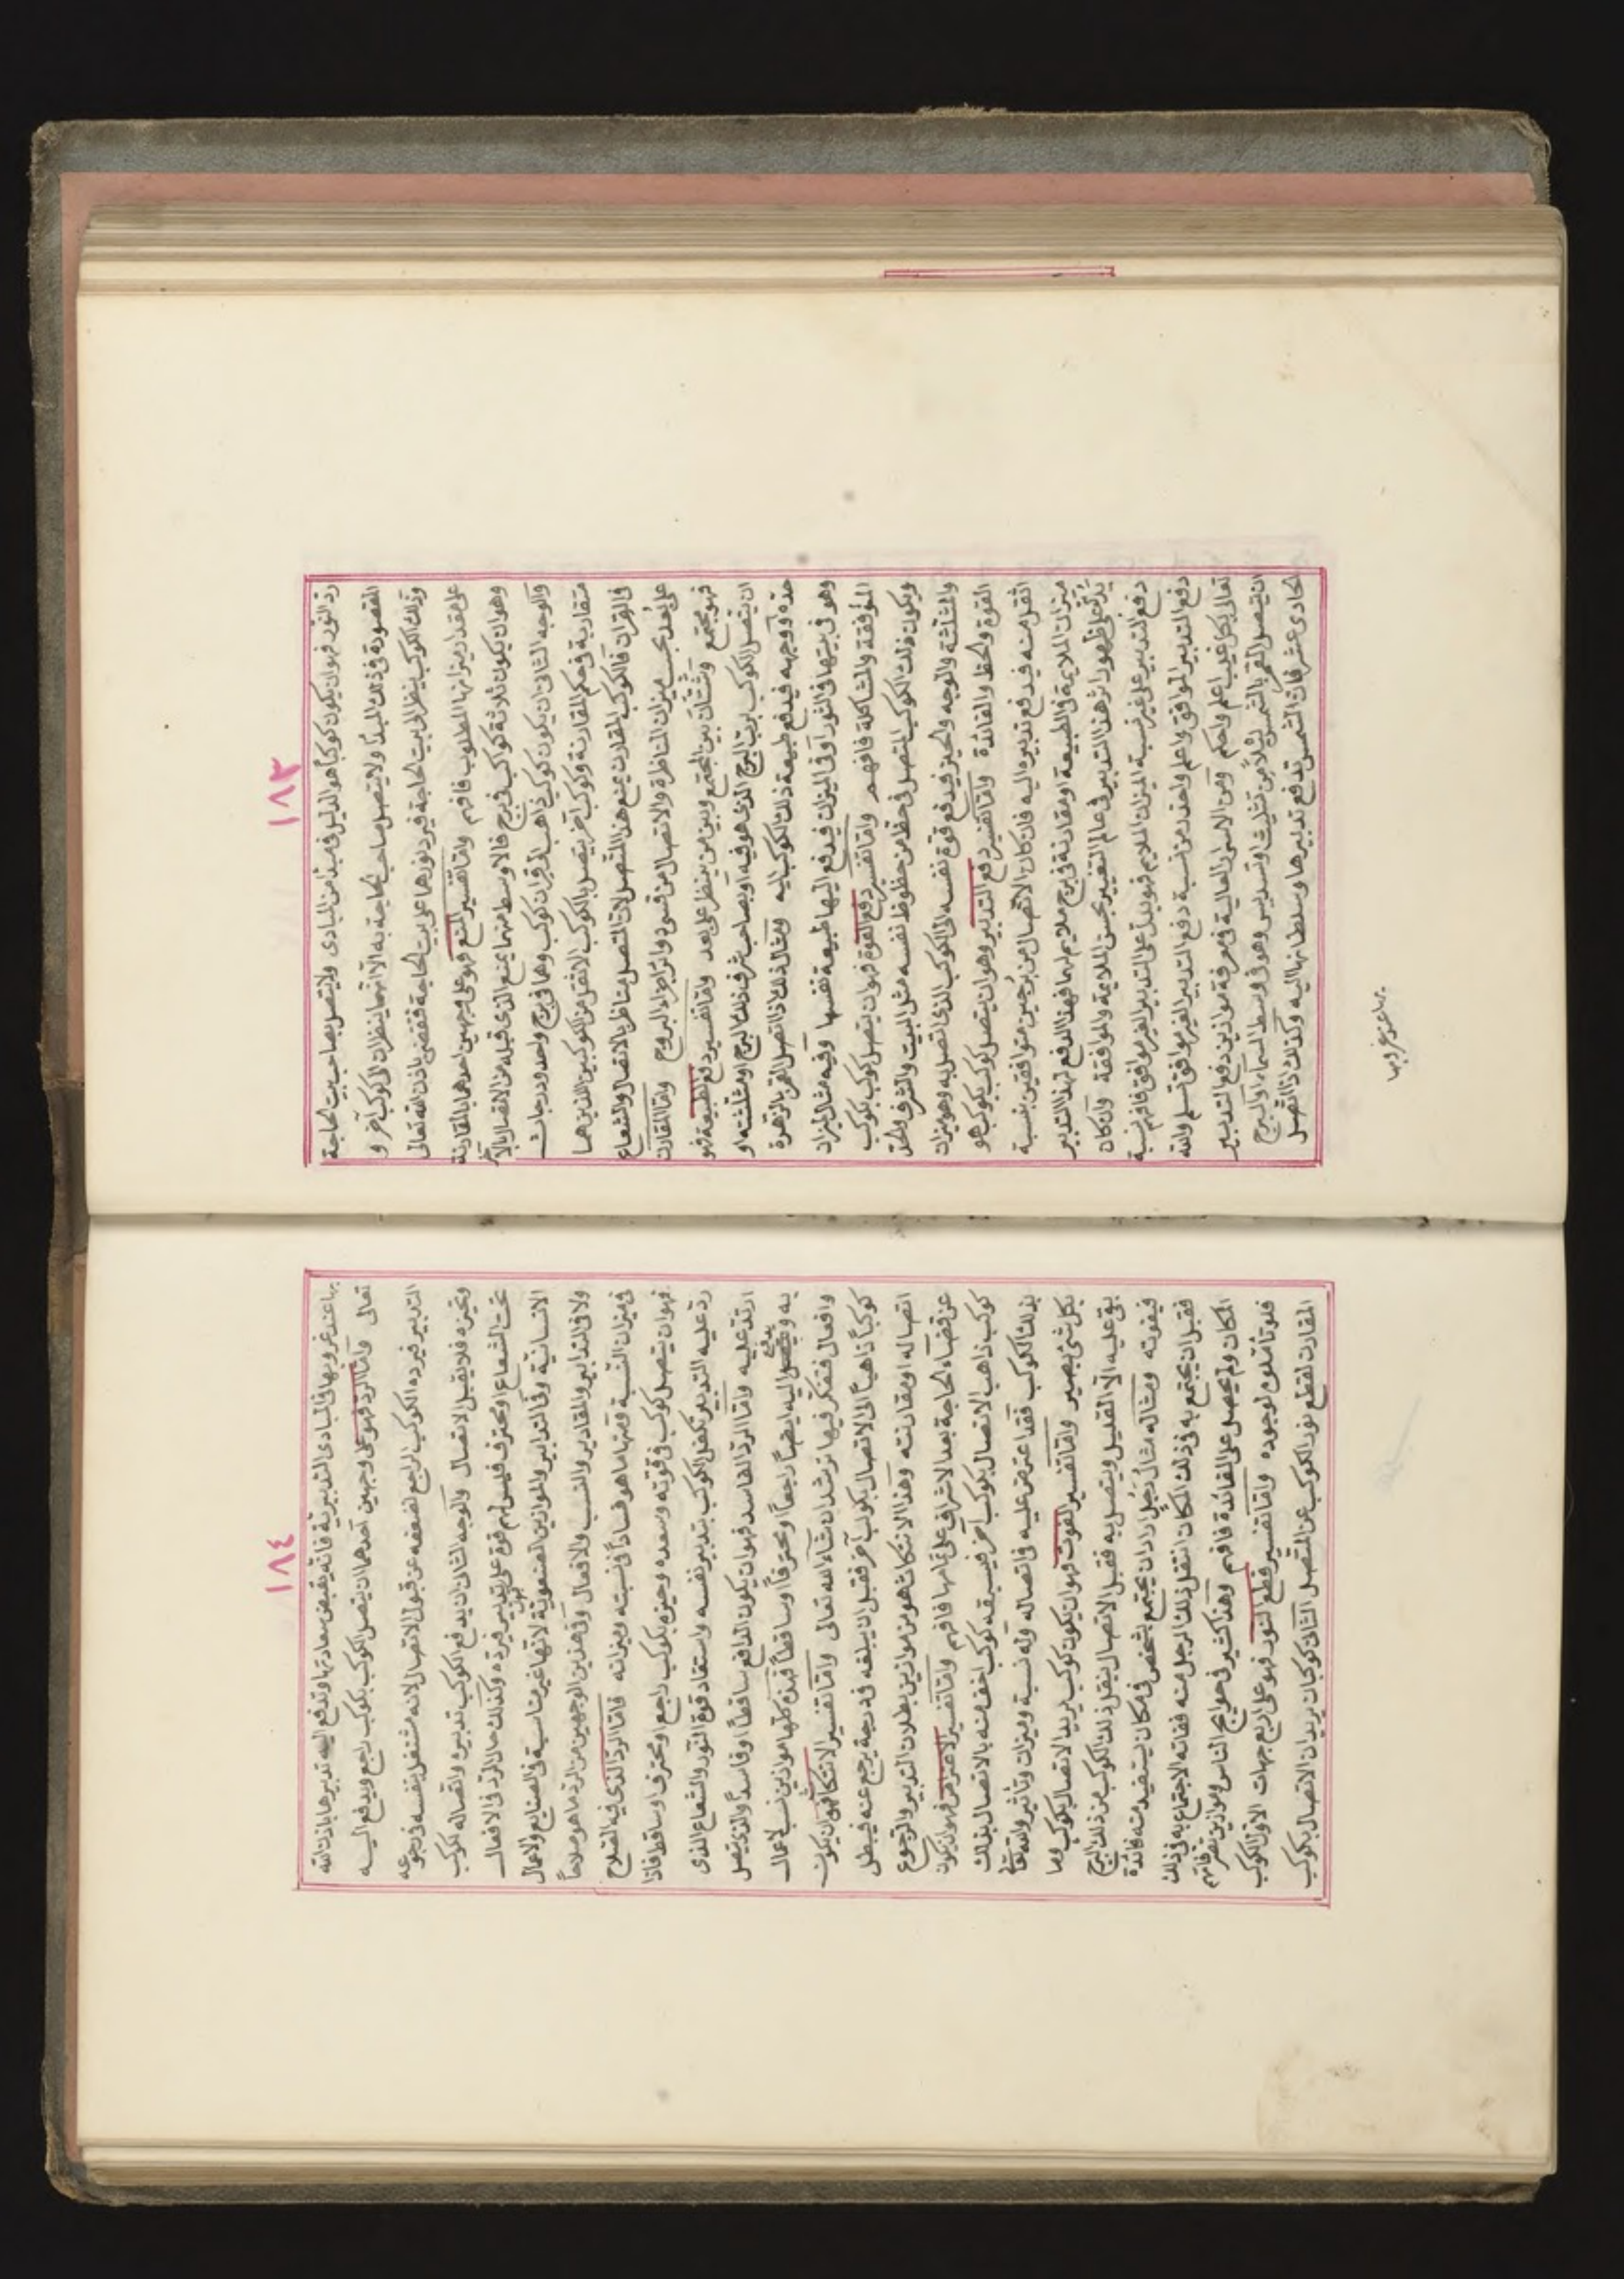 ١٨٣
ردّ النور فهو ان يكون كوكباً هو الدليل فى مبدأ من المبادى ولا يتصل بصاحب بيت الحاجة
المقصودة فى ذلك المبدأ ولا يتصل صاحب الحاجة به الا انهما ينظران الى كوكب آخر و
وذلك الكوكب ينظر الى بيت الحاجة فيرد نورهما على بيت الحاجة فتقضى باذن الله تعالى
على مقدار ميزانها المطلوب فافهم واما تفسير المنع فهو على وجهين احدهما بالمقارنة
وهو ان يكون ثلاثة كواكب فى برج فالاوسط منهما يمنع الذى قبله من الاتصال بالآخر
والوجه الثانى ان يكون كوكب ذاهب الى قران كوكب وهما فى برج واحد ودرجات
متقاربة فى حكم المقارنة وكوكب آخر يتصل بالكوكب الاثقل من الكوكبين اللذين هما
فى القران فالكوكب المقارن يمنع هذا المتصل لان المتصل مناظر بالاتصال والشعاع
على بعد بحسب ميزان المناظرة والاتصال من قسى دوائر اجزاء البروج واما المقارن
فهو مجتمع وشتان بين المجتمع وبين من ينظر على بعد واما تفسير دفع الطبيعة فهو
ان يتصل الكوكب برب البرج الذى هو فيه او بصاحب شرف ذلك البرج او مثلثته او
حده او وجهه فيدفع طبيعة ذلك الكوكب اليه ومثال ذلك اذا اتصل القمر بالزهرة
وهو فى بيتها فى الثور او فى الميزان فيدفع اليها طبيعة نفسها وفيه مثال الميزان
الموافقة والمشاكلة فافهم واما تفسير دفع القوة فهو ان يتصل كوكب بكوكب
ويكون ذلك الكوكب المتصل فى حظ من حظوظ نفسه مثل البيت والشرف والحد
والمثلثة والوجه والحيز فيدفع قوة نفسه الى الكوكب الذى اتصل به وهو ميزان
القوة والحظ والفائدة واما تفسير دفع التدبير وهو ان يتصل كوكب بكوكب هو
اثقل منه فيدفع تدبيره اليه فان كان الاتصال من برجين متوافقين بنسبة
ميزان الملايمة فى الطبيعة او مقارنة فى برج ملايم لهما فهذا الدفع لهذا التدبير
يدل على ظهور اثر هذا التدبير فى عالم التغيير بحسن الملايمة والموافقة وان كان
دفع التدبير على غير نسبة الميزان الملايم فهو يدل على التدبير الغير موافق فافهم نسبة
دفع التدبير الموافق واعلم واحذر من نسبة دفع التدبير الغير موافق تسلم والله
تعالى بكل غيب اعلم واحكم ومن الاسرار العالية فى معرفة موازين دفع التدبير
ان يتصل القمر بالشمس مثلا من تثليث او تسديس وهو فى وسط السماء او البرج
الحادى عشر فان الشمس تدفع تدبيرها وسلطانها اليه وكذلك اذا اتصل
بها عند غروبها
١٨٤
بها عند غروبها فى المبادى التدبيرية فانه يقبض سعادتها وتدفع اليه تدبيرها باذن الله
تعالى واما الرد فهو على وجهين احدهما ان يتصل الكوكب بكوكب راجع ويدفع اليه
التدبير فيرده الكوكب الراجع لضعفه عن قبول الاتصال لانه مشتغل بنفسه فى رجوعه
وتحيزه فلا يقبل الاتصال والوجه الثانى ان يدفع الكوكب تدبيره واتصاله لكوكب
تحت الشعاع او محترق فليس لهم قوة على تدبير فيرده وكذلك حال الرد فى الافعال
الانسانية وفى التدابير والموازين المنعوية لانها غير مناسبة فى الصنايع والاعمال
ولا فى التدابير والمقادير والنسب والافعال وفى هذين الوجهين من الرد ما هو صلاحاً
فى ميزان النسبة ومنها ما هو فساداً فى نسبته وميزانه فاما الرد الذى فيه الصلاح
فهو ان يتصل كوكب فى قوته وسعده وحيزه بكوكب راجع او محترق او ساقط فاذا
ردّ عليه التدبير تكفل الكوكب بتدبير نفسه واستفاد قوة النور والشعاع الذى
ارتد عليه واما الرد الفاسد فهو ان يكون الدافع ساقطاً او فاسداً والذى يتصل
به ويدفع اليه ايضاً راجعاً او محترقاً او ساقطاً فهذه كلها موازين نسب لاعمال
وافعال فتفكر فيها ترشد ان شاء الله تعالى واما تفسير الانتكاث فهو ان يكون
كوكباً ذاهباً الى الاتصال بكوكب آخر فقبل ان يبلغه فى درجة يرجع عنه فيبطل
اتصاله او مقارنته وهذا الانتكاث هو من موازين بطلان التدبير والرجوع
عن قضاء الحاجة بعد الاشراف على تمامها فافهم واما تفسير الاعتراض فهو ان يكون
كوكب ذاهب الاتصال بكوكب آخر فيسبقه كوكب اخف منه بالاتصال بذلك
بذلك الكوكب فقد اعترض عليه فى اتصاله وله نسبة وميزان وتأثير والله تعالى
بكل شئ بصير واما تفسير الفوت فهو ان يكون كوكب يريد الاتصال بكوكب وما
بقى عليه الا القليل ويتصل به فقبل الاتصال ينقل ذلك الكوكب من ذلك البرج
فيفوته ومثاله مثال رجل اراد ان يجتمع بشخص فى مكان ليستفيد منه فائدة
فقبل ان يجتمع به فى ذلك المكان انتقل ذلك الرجل منه ففاته الاجتماع به فى ذلك
المكان ولم يحصل على الفائدة فافهم وهذا كثير فى حوايج الناس وموازين تصرفاتهم
فلو تأملوه لوجدوه واما تفسير قطع النور فهو على اربع جهات الاول الكوكب
المقارن لقطع نور الكوكب عن المتصل الثانى كوكبان يريدان الاتصال بكوكب